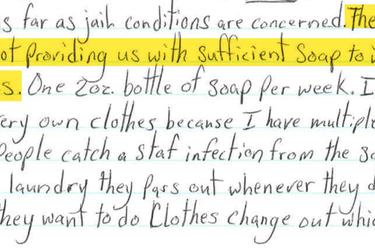 s far as jail conditions are concerned. The
ot providing us with sufficient soap to
s. One 2oz. bottle of soap per week. I
ery own clothes because I have multiple
people catch a staf infection from the
laundry they pass out whenever they d
they want to do Clothes change out whic